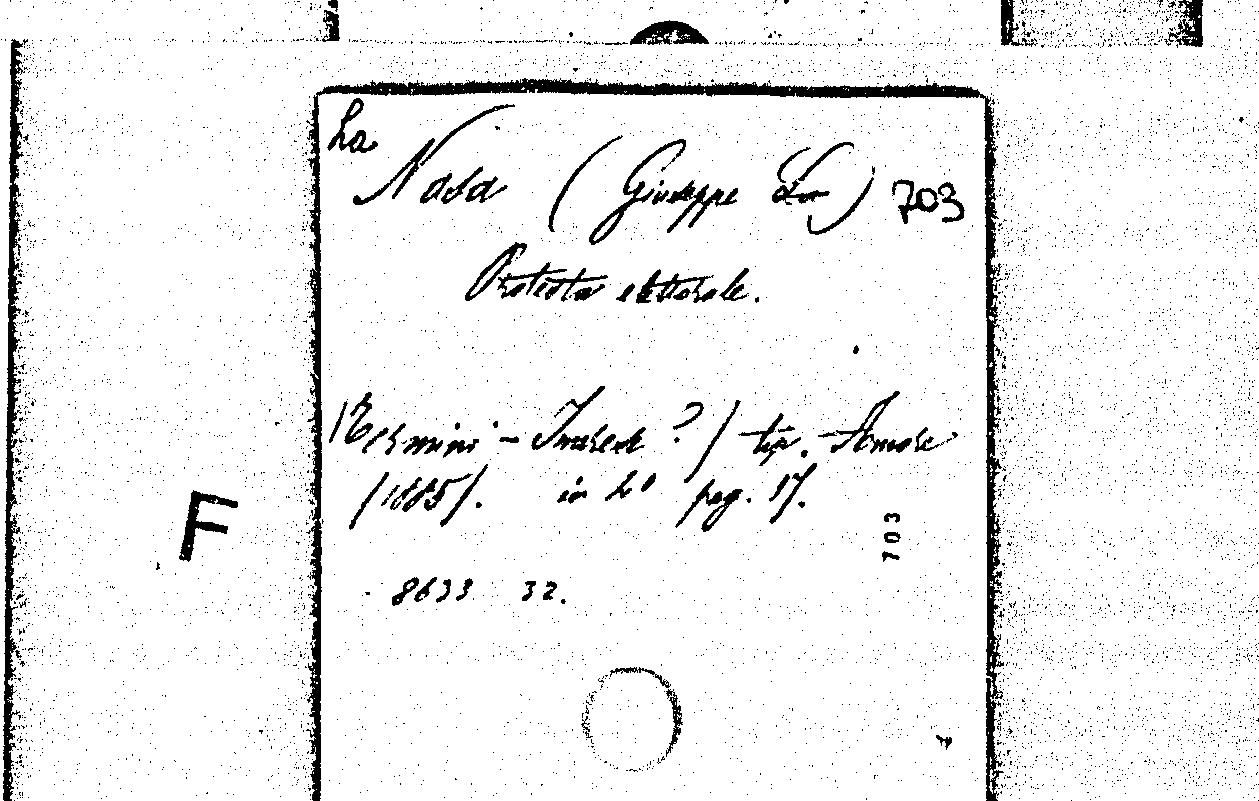 La
Nasa (Giuseppe La) 703
Protesta elettorale.
(Termini - Imerese ?) tip. Amore
(1885). in 4° pag. 17.
F
703
8633 32.